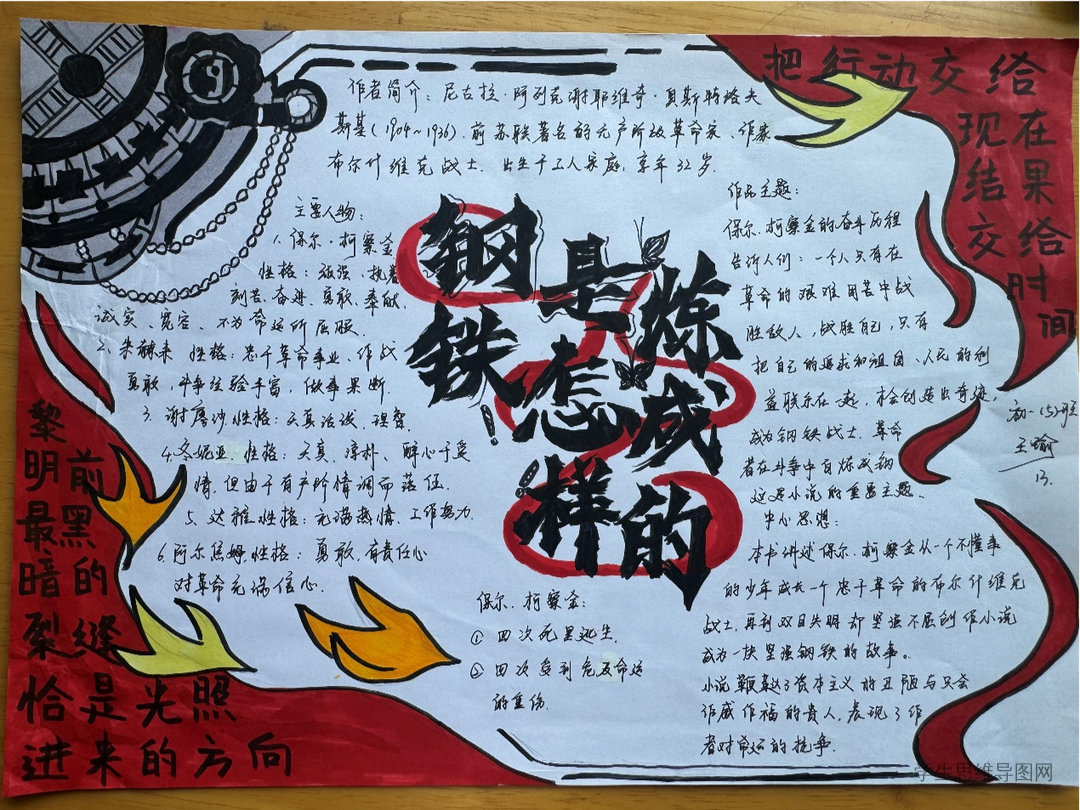 作者简介：尼古拉·阿列克谢耶维奇·奥斯特洛夫
斯基(1904~1936)，前苏联著名的无产阶级革命家、作家
布尔什维克战士，出生于工人家庭，享年32岁。
把行动交给
现在
结果
交给
时间
主要人物：
1、保尔·柯察金
性格：顽强、执着
刻苦、奋进、勇敢、奉献、
诚实、宽容、不为命运所屈服。
2、朱赫来 性格：忠于革命事业、作战
勇敢，斗争经验丰富，做事果断。
3、谢廖沙性格：天真活泼、理智。
4、冬妮亚，性格：天真、淳朴、醉心于爱
情，但由于有产阶情调而落伍。
5、达雅性格：充满热情，工作努力
6、阿尔焦姆，性格：勇敢，有责任心
对革命充满信心。
钢铁是怎样炼成的
作品主题：
保尔·柯察金的奋斗历程
告诉人们：一个人只有在
革命的艰难困苦中战
胜敌人，战胜自己，只有
把自己的追求和祖国、人民的利
益联系在一起，才会创造出奇迹，
成为钢铁战士，革命
者在斗争中百炼成钢
这是小说的重要主题。
中心思想：
本书讲述保尔·柯察金从一个不懂事
的少年成长一个忠于革命的布尔什维克
战士，再到双目失明却坚强不屈创作小说
成为一块坚强钢铁的故事。
小说鞭挞了资本主义的丑陋与只会
作威作福的贵人，表现了作
者对命运的抗争。
初一(5)班
王瑜
13
保尔·柯察金：
①四次死里逃生。
②四次受到危及命运
的重伤。
黎
明前
最黑
暗的
裂缝
恰是光照
进来的方向
学生思维导图网